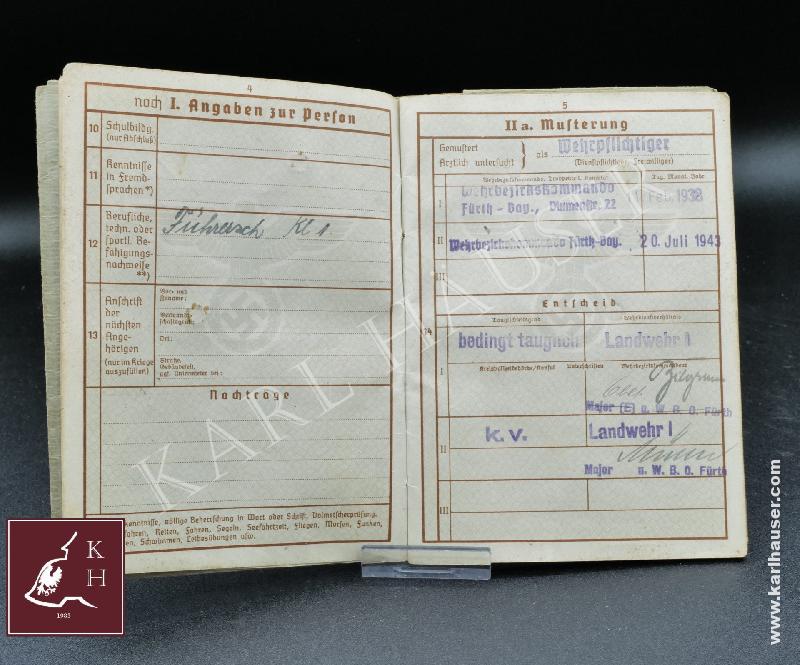 4
noch I. Angaben zur Person
10
Schulbildg.
(nur Abschluß)
11
Kenntnisse
in Fremd-
sprachen*)
12
Berufliche,
techn. oder
sportl. Be-
fähigungs-
nachweise
**)
Führersch Kl 1
13
Anschrift
der
nächsten
Ange-
hörigen
(nur im Kriege
auszufüllen)
Vor- und
Zuname:
Ort:
Straße,
Nachträge
kenntnisse, völlige Beherrschung in Wort oder Schrift, Dolmetscherprüfung.
fahren, Reiten, Fahren, Segeln, Seefahrtzeit, Fliegen, Morsen, Funken,
en, Schwimmen, Lotbasübungen usw.
5
II a. Musterung
Gemustert
Ärztlich untersucht
als
Wehrpflichtiger
(Dienstpflichtiger, Freiwilliger)
Tag, Monat, Jahr
I
Wehrbezirkskommando
Fürth - Bay., 22
Feb. 1938
II
Wehrbezirkskommando Fürth-Bay.
20. Juli 1943
III
Entscheid
14
Tauglichkeitsgrad
Wehrdienstverhältnis
bedingt tauglich
Landwehr I
I
Unterschriften
Major (E) u. W. B. O. Fürth
II
k.v.
Landwehr I
Major u. W. B. O. Fürth
III
KARL HAUSER
K
H
1983
www.karlhauser.com